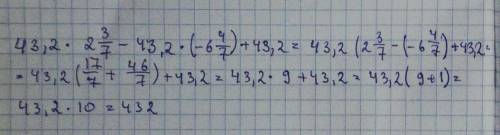 43,2 · 2 3/7 - 43,2 · (-6 4/7) + 43,2 = 43,2 (2 3/7 - (-6 4/7) + 43,2 =
= 43,2 (17/7 + 46/7) + 43,2 = 43,2 · 9 + 43,2 = 43,2 (9+1) =
43,2 · 10 = 432